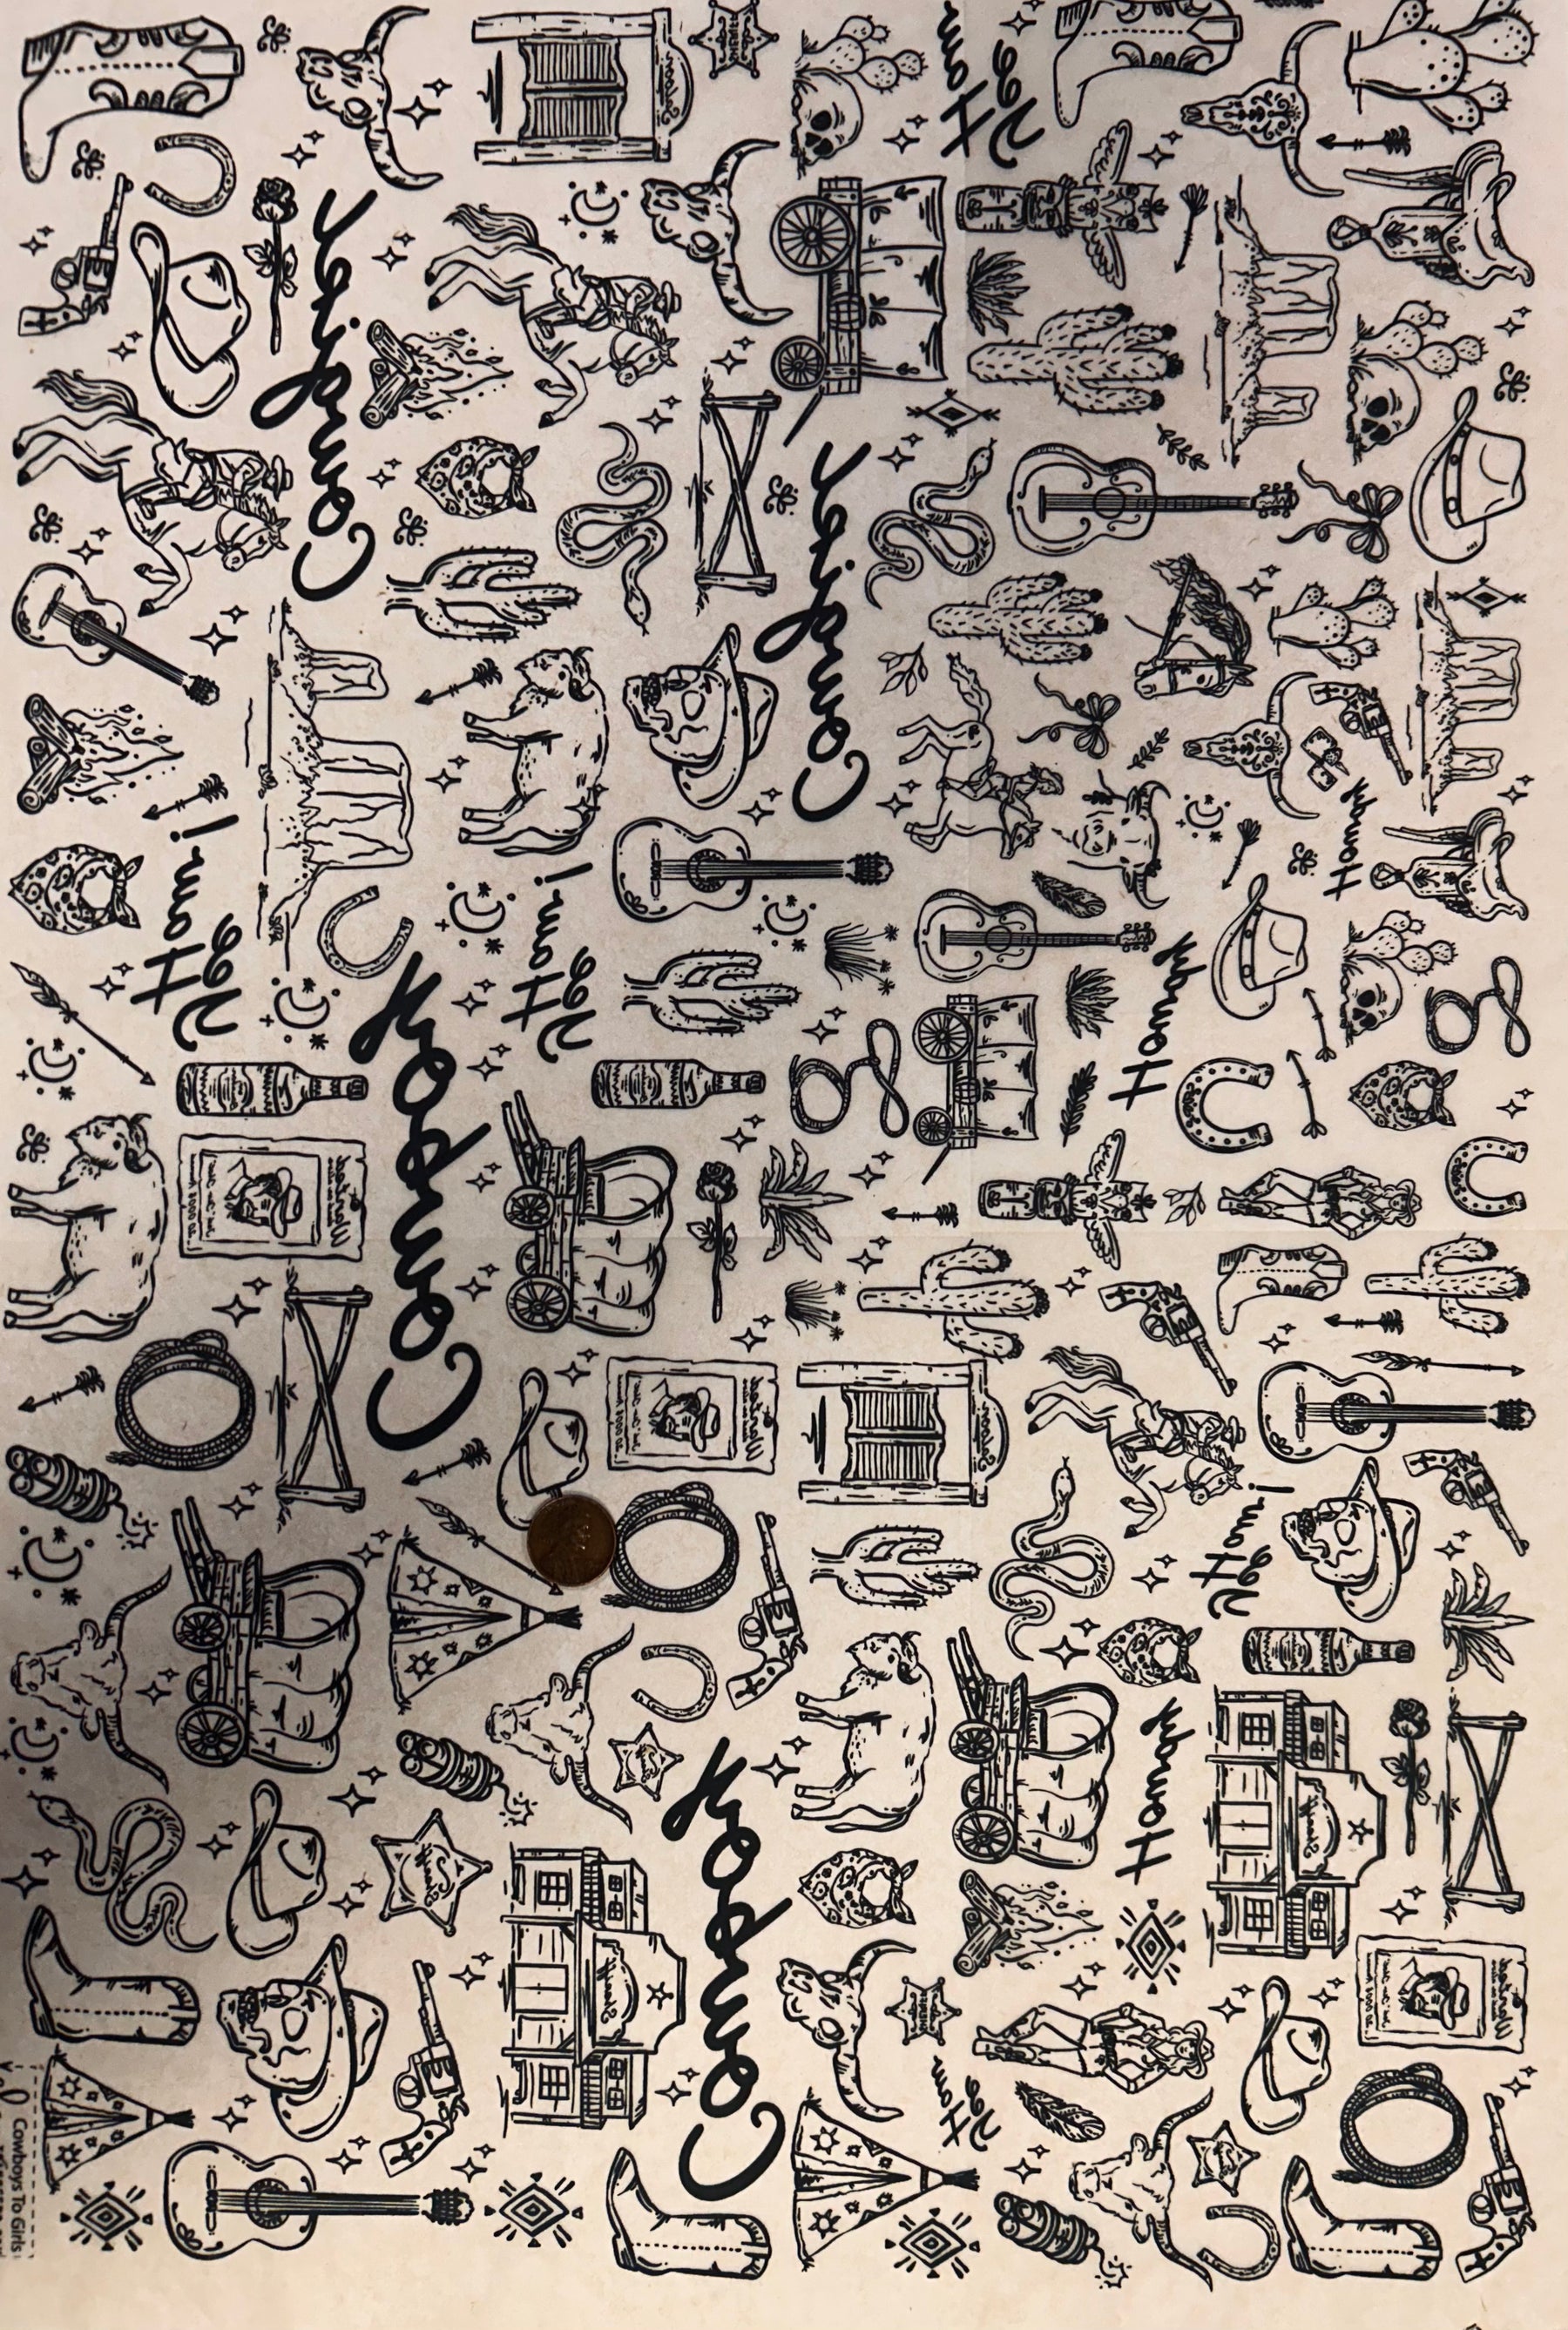 Saloon
Yee
Haw
Cowboy
Cowboy
Howdy
Yee
Haw!
Yee
Haw!
Howdy
Cowboy
Wanted
Wanted
Saloon
Yee
Haw!
Howdy
Sheriff
Sheriff
Sheriff
Cowboy
Wanted
Yee
Haw
Cowboys To Girls